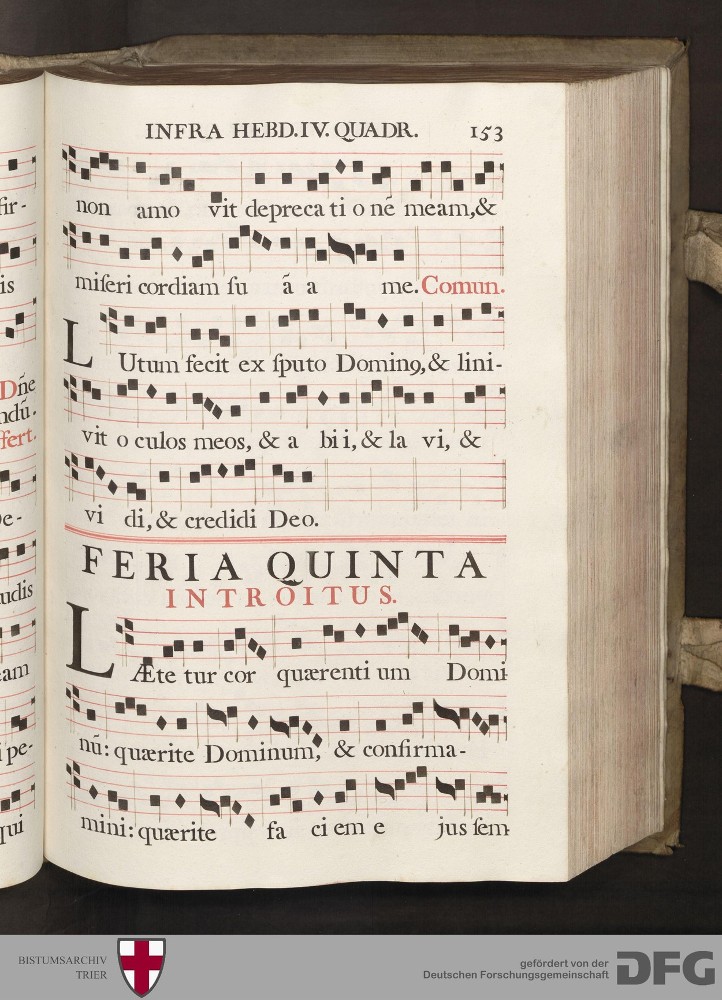 INFRA HEBD. IV. QUADR. 153
non amo vit depreca ti o nẽ meam, &
miſeri cordiam ſu ã a me. Comun.
LUtum fecit ex ſputo Dominꝯ, & lini-
vit o culos meos, & a bi i, & la vi, &
vi di, & credidi Deo.
FERIA QUINTA
INTROITUS.
LÆte tur cor quærenti um Domi-
nũ: quærite Dominum, & confirma-
mini: quærite fa ci em e jus ſem-
fir-
is
Dñe
ndũ.
fert.
De-
udis
eam
i pe-
qui
BISTUMSARCHIV
TRIER
gefördert von der
Deutschen Forschungsgemeinschaft
DFG